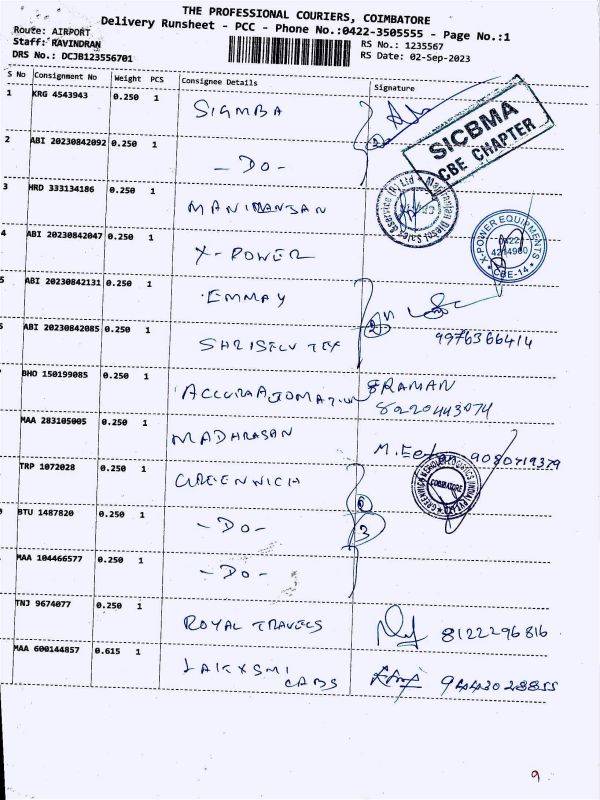 THE PROFESSIONAL COURIERS, COIMBATORE
Delivery Runsheet - PCC - Phone No.:0422-3505555 - Page No.:1
Route: AIRPORT
Staff: RAVINDRAN
DRS No.: DCJB123556701
RS No.: 1235567
RS Date: 02-Sep-2023
S No Consignment No Weight PCS Consignee Details Signature
1 KRG 4543943 0.250 1 SIGMBA
SICBMA
CBE CHAPTER
2 ABI 20230842092 0.250 1 - DO -
3 HRD 333134186 0.250 1 MANIMANJAN
4 ABI 20230842047 0.250 1 X-POWER
X-POWER EQUIPMENTS
0422
CBE-14
5 ABI 20230842131 0.250 1 EMMAY
ABI 20230842085 0.250 1 SHRISELV TEX
9976366414
BHO 150199085 0.250 1 ACCURAATOMATION
8220443074
MAA 283105005 0.250 1 MADHRASAN
9080719379
TRP 1072028 0.250 1 GREENWICH
COIMBATORE
BTU 1487820 0.250 1 - DO -
3
MAA 104466577 0.250 1 - DO -
TNJ 9674077 0.250 1 ROYAL TRAVELS 8122296816
MAA 600144857 0.615 1 LAKXSMI
CABS
9443028855
9